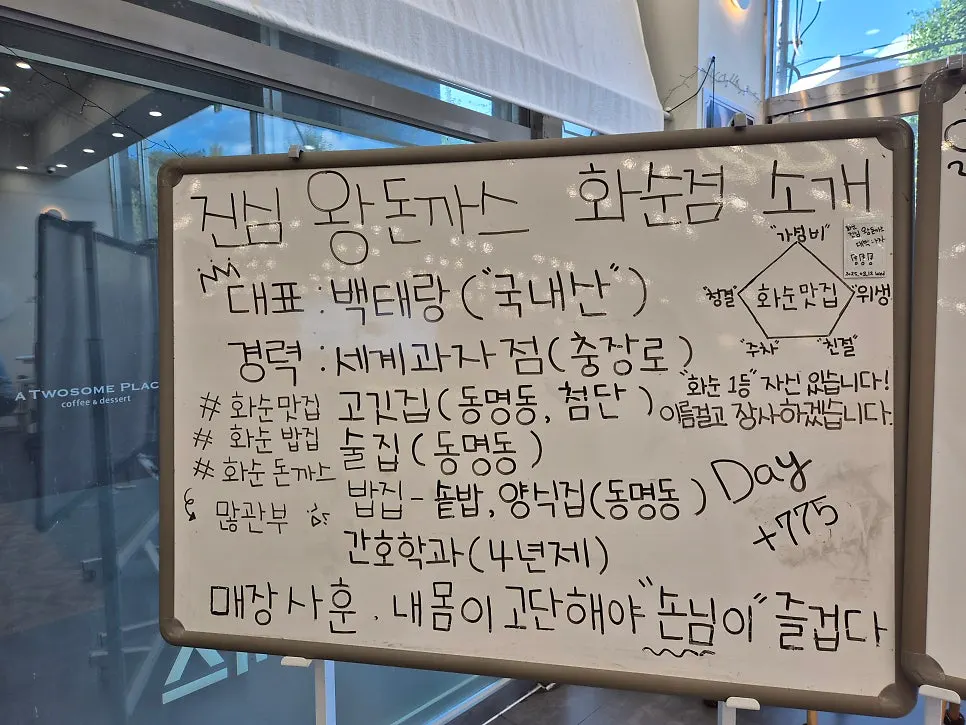 진심 왕돈까스 화순점 소개
대표 : 백태랑 ("국내산")
경력 : 세계과자점 (충장로)
고깃집 (동명동, 첨단)
술집 (동명동)
밥집 - 솥밥, 양식집 (동명동)
간호학과 (4년제)
# 화순맛집
# 화순 밥집
# 화순 돈까스
많관부
"가성비"
"청결" 화순맛집 "위생"
"주차" "친절"
"화순 1등" 자신 있습니다!
이름걸고 장사하겠습니다.
Day
+775
매장 사훈. 내몸이 고단해야 "손님이" 즐겁다
A TWOSOME PLAC
coffee & dessert